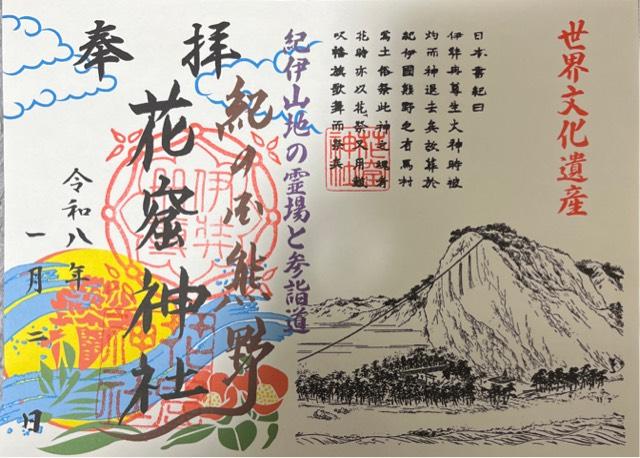 世界文化遺産
日本書紀曰
伊弉冉尊生火神時被
灼而神退去矣故葬於
紀伊國熊野之有馬村
焉土俗祭此神之魂者
花時亦以花祭又用鼓
吹幡旗歌舞而祭矣
花窟神社
紀伊山地の霊場と参詣道
奉拝
紀の国熊野
花窟神社
令和八年
一月二日